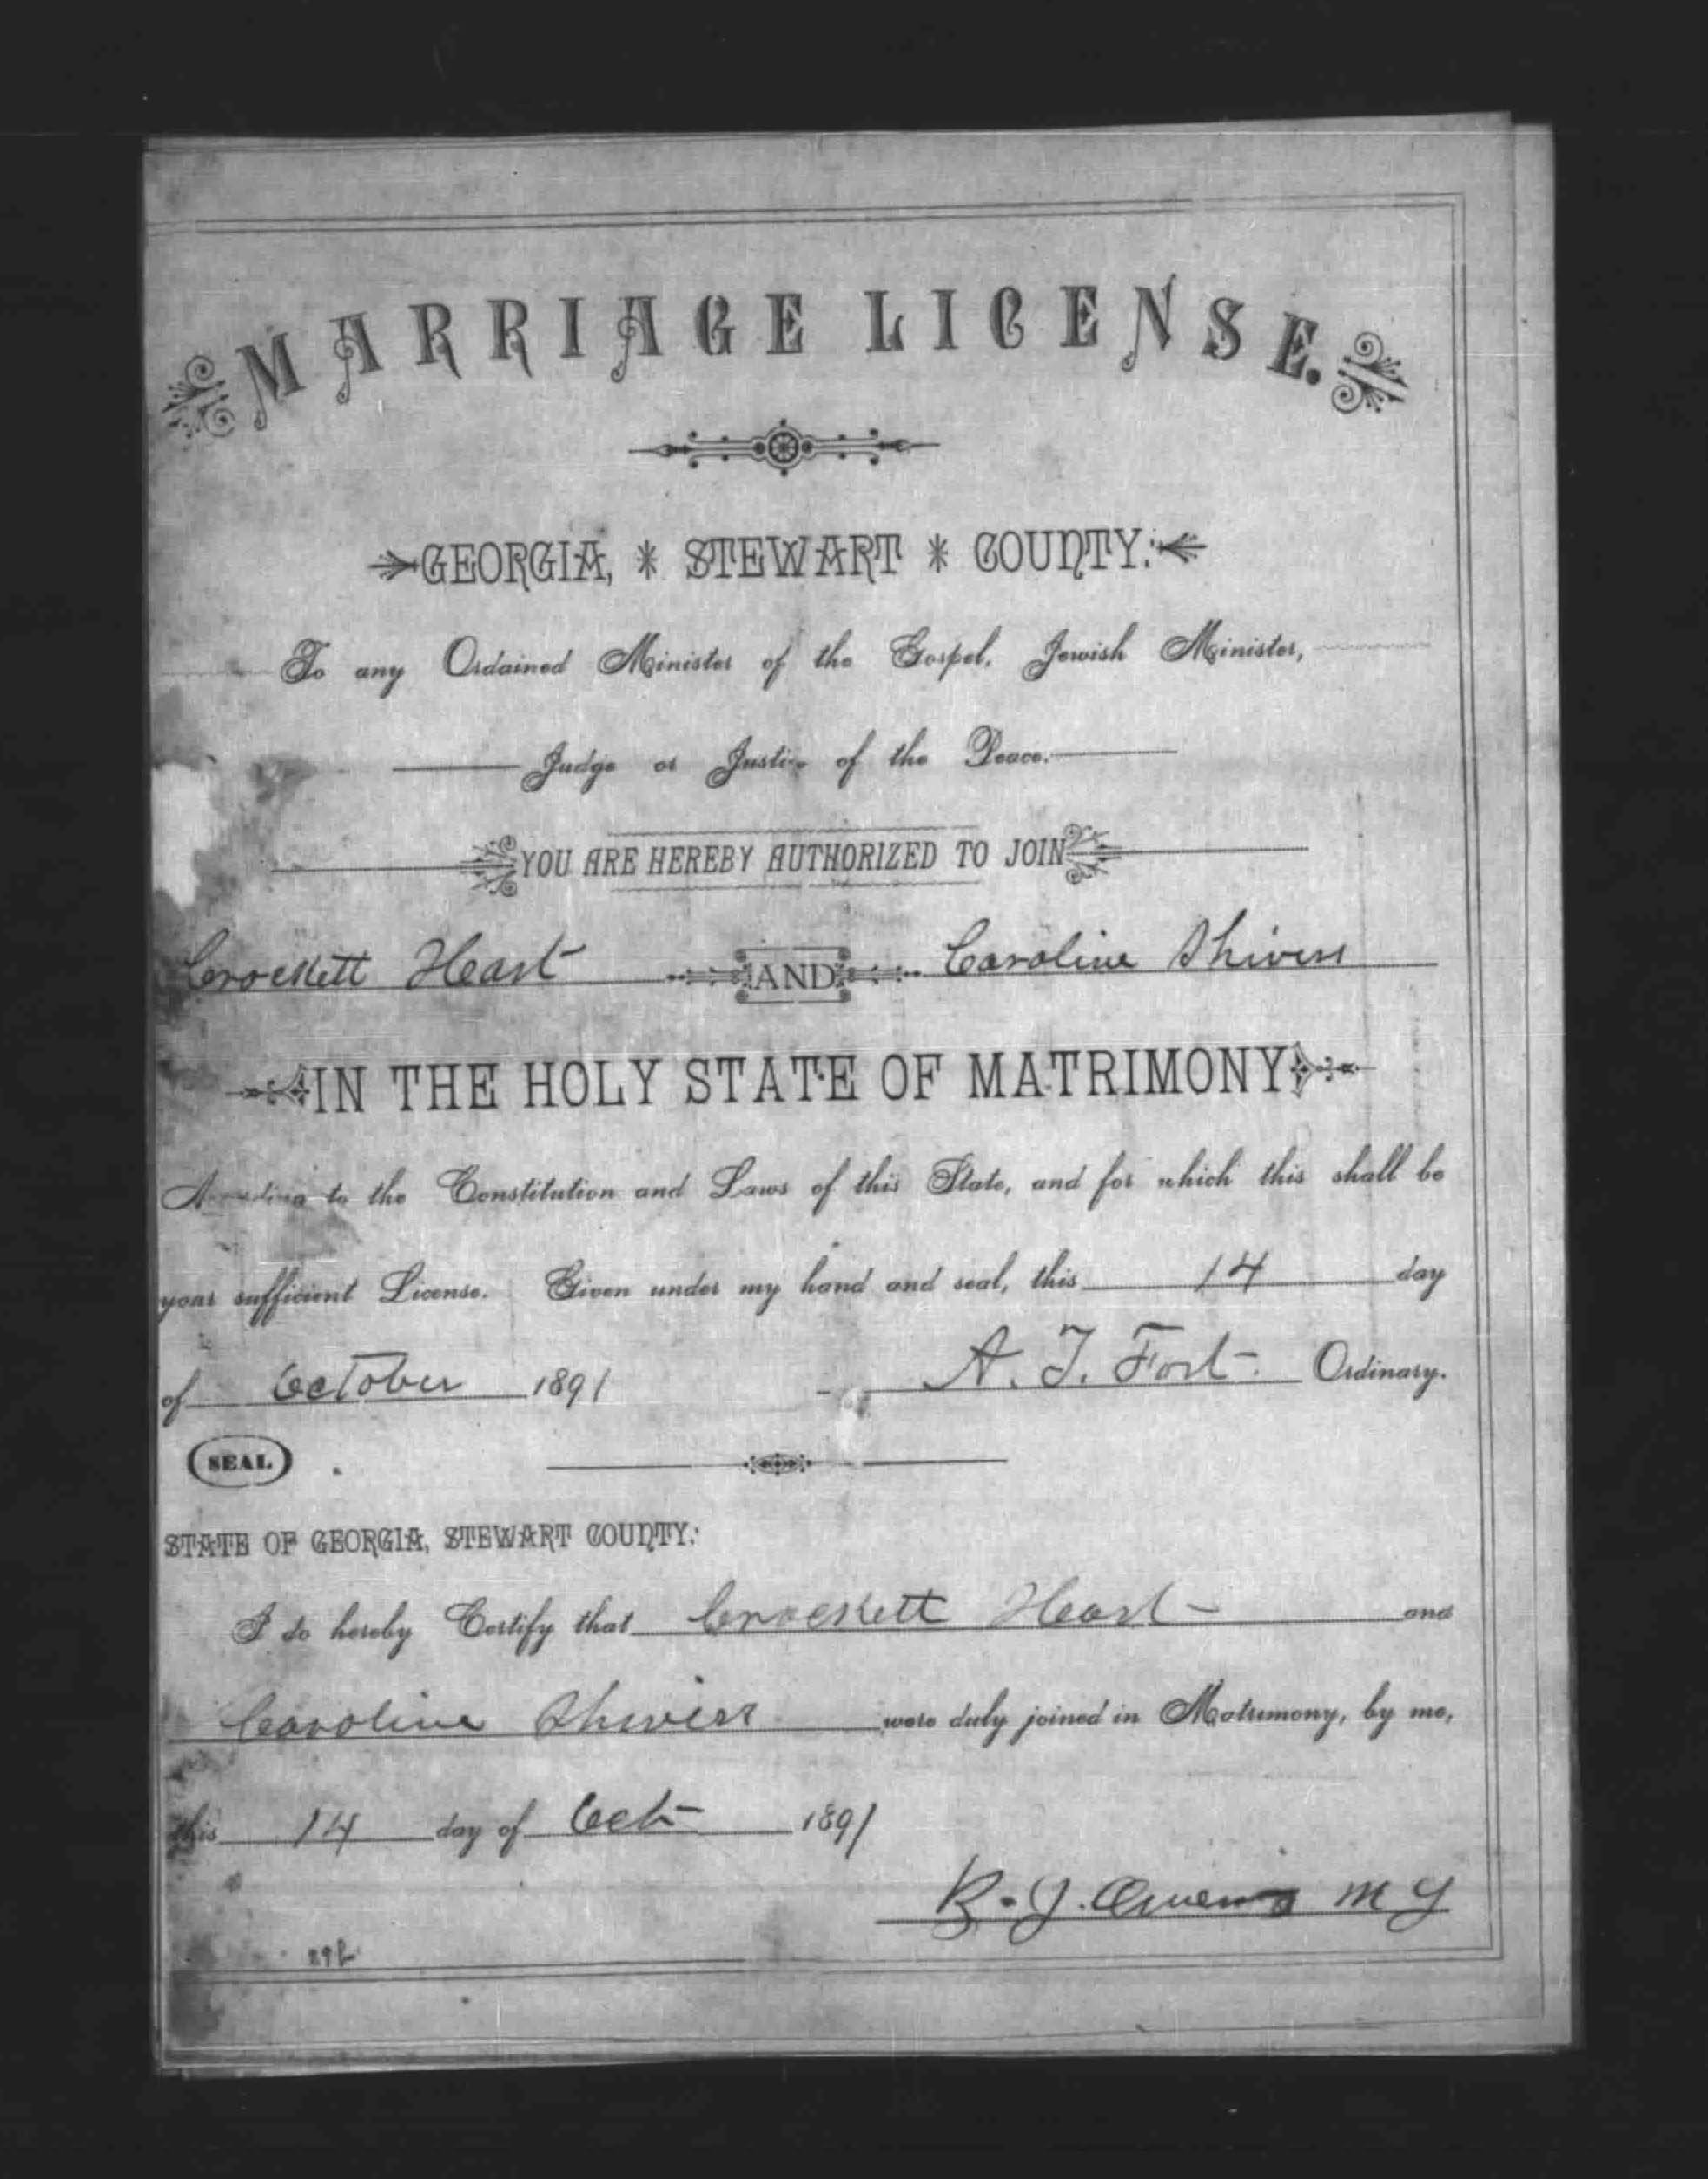 MARRIAGE LICENSE.
GEORGIA, * STEWART * COUNTY:
To any Ordained Minister of the Gospel, Jewish Minister,
Judge or Justice of the Peace.
YOU ARE HEREBY AUTHORIZED TO JOIN
Crockett Heart AND Caroline Shivers
IN THE HOLY STATE OF MATRIMONY
According to the Constitution and Laws of this State, and for which this shall be
your sufficient License. Given under my hand and seal, this 14 day
of October 1891 A. T. Fort Ordinary.
SEAL
STATE OF GEORGIA, STEWART COUNTY:
I do hereby Certify that Crockett Heart and
Caroline Shivers were duly joined in Matrimony, by me,
this 14 day of Oct 1891
B. J. Owens M G